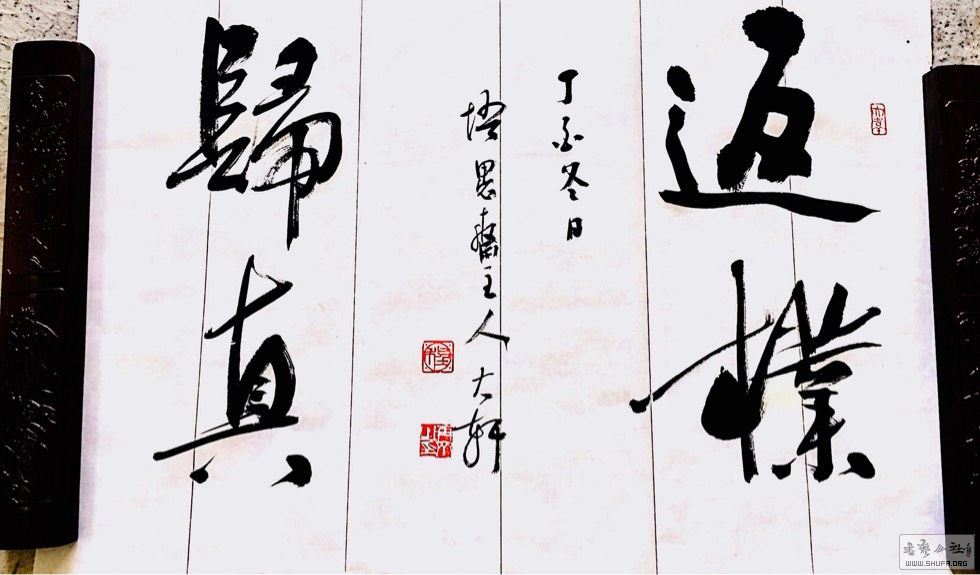 返樸
丁酉冬日
思齋主人大轩
歸真
书艺公社
WWW.SHUFA.ORG